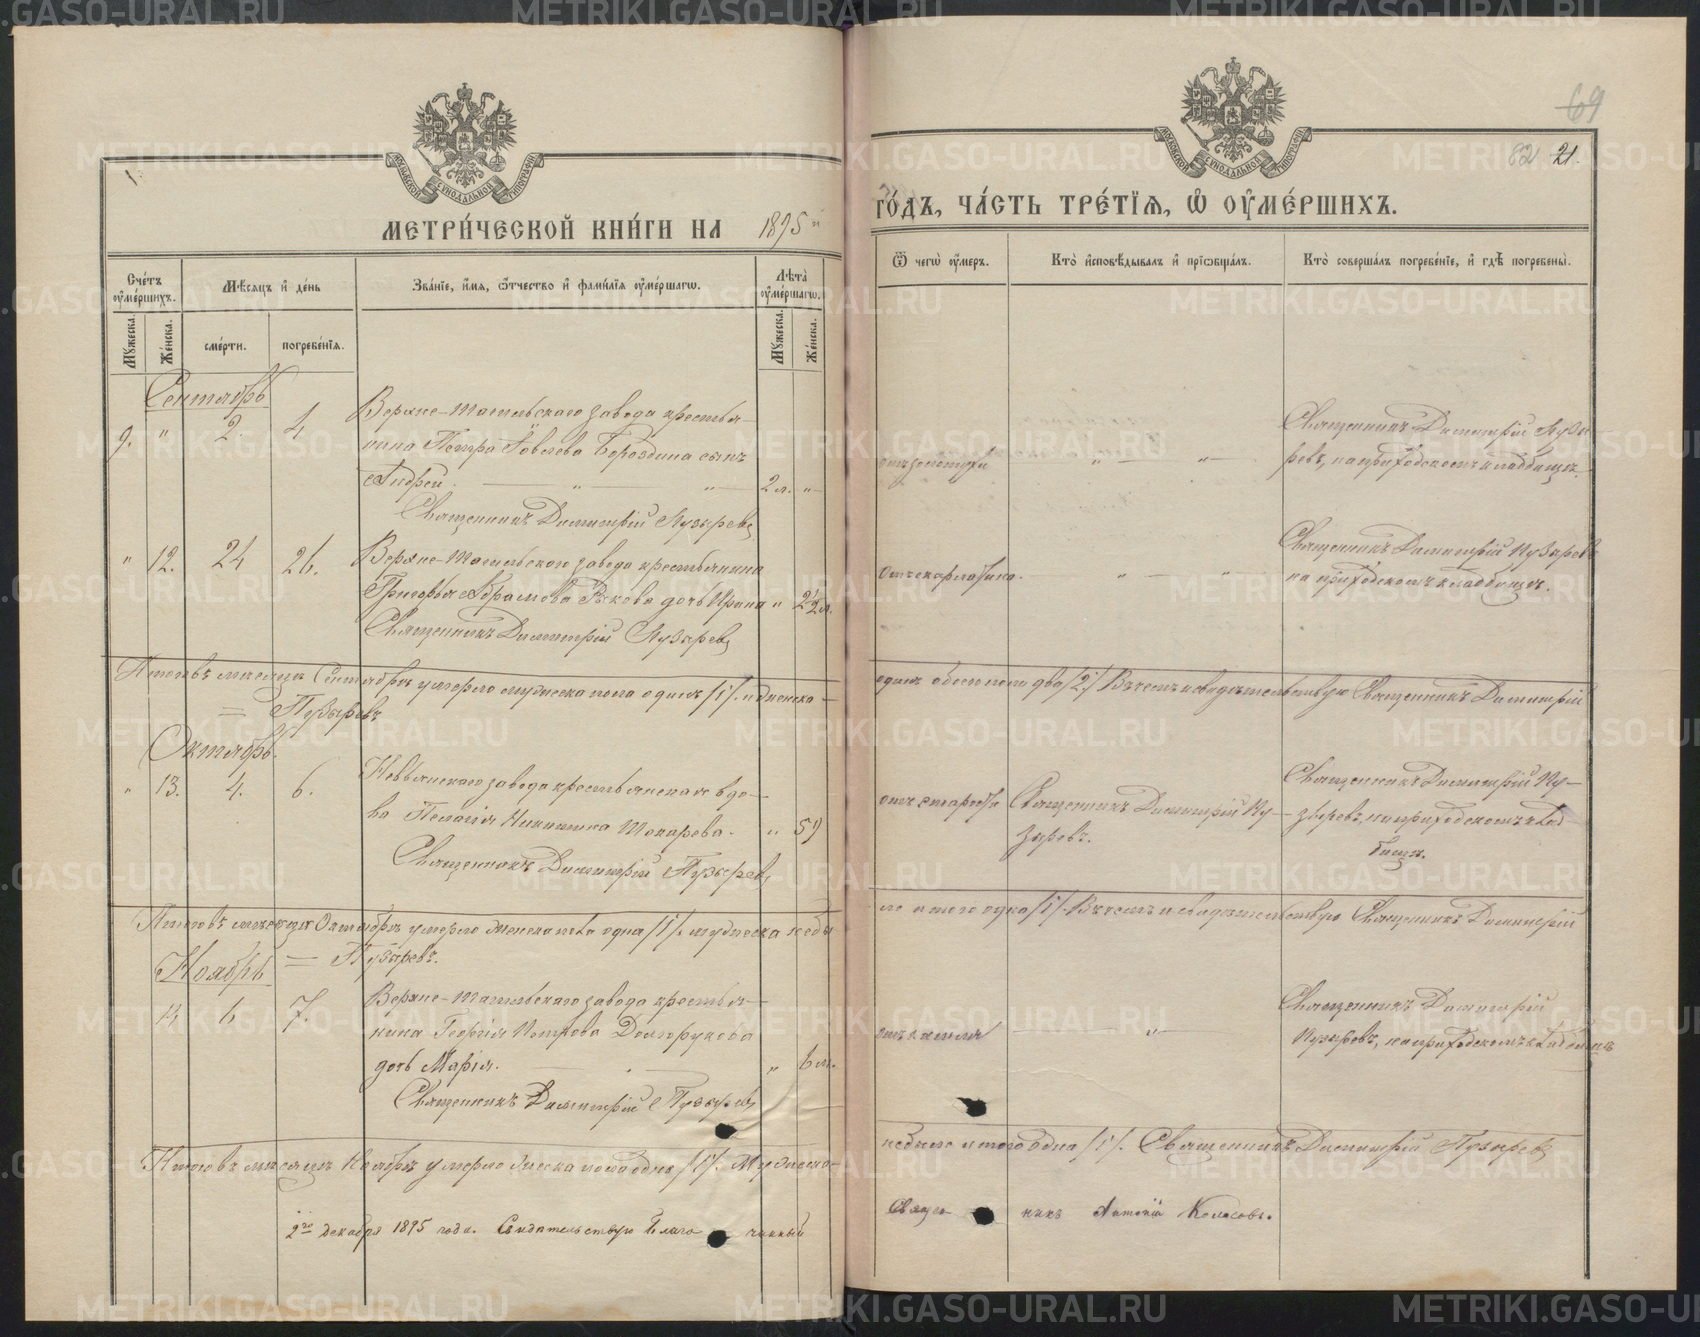 69
82 21.
МЕТРИ́ЧЕСКОЙ КНИ́ГИ НА 1895 й
ГО́ДЪ, ЧА́СТЬ ТРЕ́ТЇЯ, Ѡ҆ ОУ҆МЕ́РШИХЪ.
Сче́тъ оу҆ме́ршихъ.
Мꙋ́жеска.
Же́нска.
Мѣ́сяцъ и҆ де́нь
сме́рти.
погребе́нїя.
Зва́нїе, и҆́мя, ѻ҆́тчество и҆ фами́лїя оу҆ме́ршагѡ.
Лѣ́та оу҆ме́ршагѡ.
Мꙋ́жеска.
Же́нска.
Ѿ чегѡ̀ оу҆́меръ.
Кто̀ и҆сповѣ́дывалъ и҆ прїѡбща́лъ.
Кто̀ соверша́лъ погребе́нїе, и҆ гдѣ̀ погребены̀.
Сентябрь
9. " 2. 4
Верхне-Тагильскаго завода крестья-
нина Петра Іовлева Бороздина сынъ
Андрей. — " — " — 2 л. "
Священникъ Димитрій Пузыревъ
отъ золотухи
" — " —
Священникъ Димитрій Пузы-
ревъ, на приходскомъ кладбищѣ.
" 12. 24 26.
Верхне-Тагильскаго завода крестьянина
Григорья Абрамова Рыкова дочь Ирина " 2½ л.
Священникъ Димитрій Пузыревъ
Отъ скарлатины.
" — " —
Священникъ Димитрій Пузыревъ
на приходскомъ кладбищѣ.
Итого въ мѣсяцѣ Сентябрѣ умерло мужеска пола одинъ /1/. и женска —
одинъ обоего пола два /2/. Въ чемъ и свидѣтельствую Священникъ Димитрій
= Пузыревъ
Октябрь.
" 13. 4. 6.
Невьянскаго завода крестьянская вдо-
ва Пелагія Никитина Токарева. " 59
Священникъ Димитрій Пузыревъ
отъ старости
Священникъ Димитрій Пу-
зыревъ.
Священникъ Димитрій Пу-
зыревъ, на приходскомъ клад-
бищѣ.
Итого въ мѣсяцѣ Октябрѣ умерло женска пола одна /1/. мужеска небы
ло итого одна /1/. Въ чемъ и свидетельствую Священникъ Димитрій
= Пузыревъ.
Ноябрь
14 6 7.
Верхне-Тагильскаго завода крестья-
нина Георгія Петрова Долгорукова
дочь Марія. — " — " 6 м.
Священникъ Димитрій Пузыревъ
отъ кашля
— " —
Священникъ Димитрій
Пузыревъ, на приходскомъ кладбищѣ
Итого въ мѣсяцѣ Ноябрѣ умерло женска пола одна /1/. Мужеска —
небыло итого одна /1/. Священникъ Димитрій Пузыревъ
2го декабря 1895 года. Свидѣтельствую Благо чинный
Священ никъ Антоній Колосовъ.